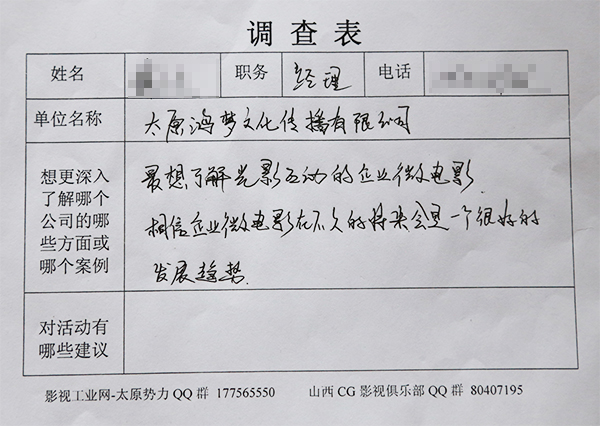 调查表
姓名 职务 经理 电话
单位名称 太原鸿梦文化传播有限公司
想更深入
了解哪个
公司的哪
些方面或
哪个案例
最想了解光影互动的企业微电影
相信企业微电影在不久的将来会是一个很好的
发展趋势.
对活动有
哪些建议
影视工业网-太原势力QQ群 177565550 山西CG影视俱乐部QQ群 80407195